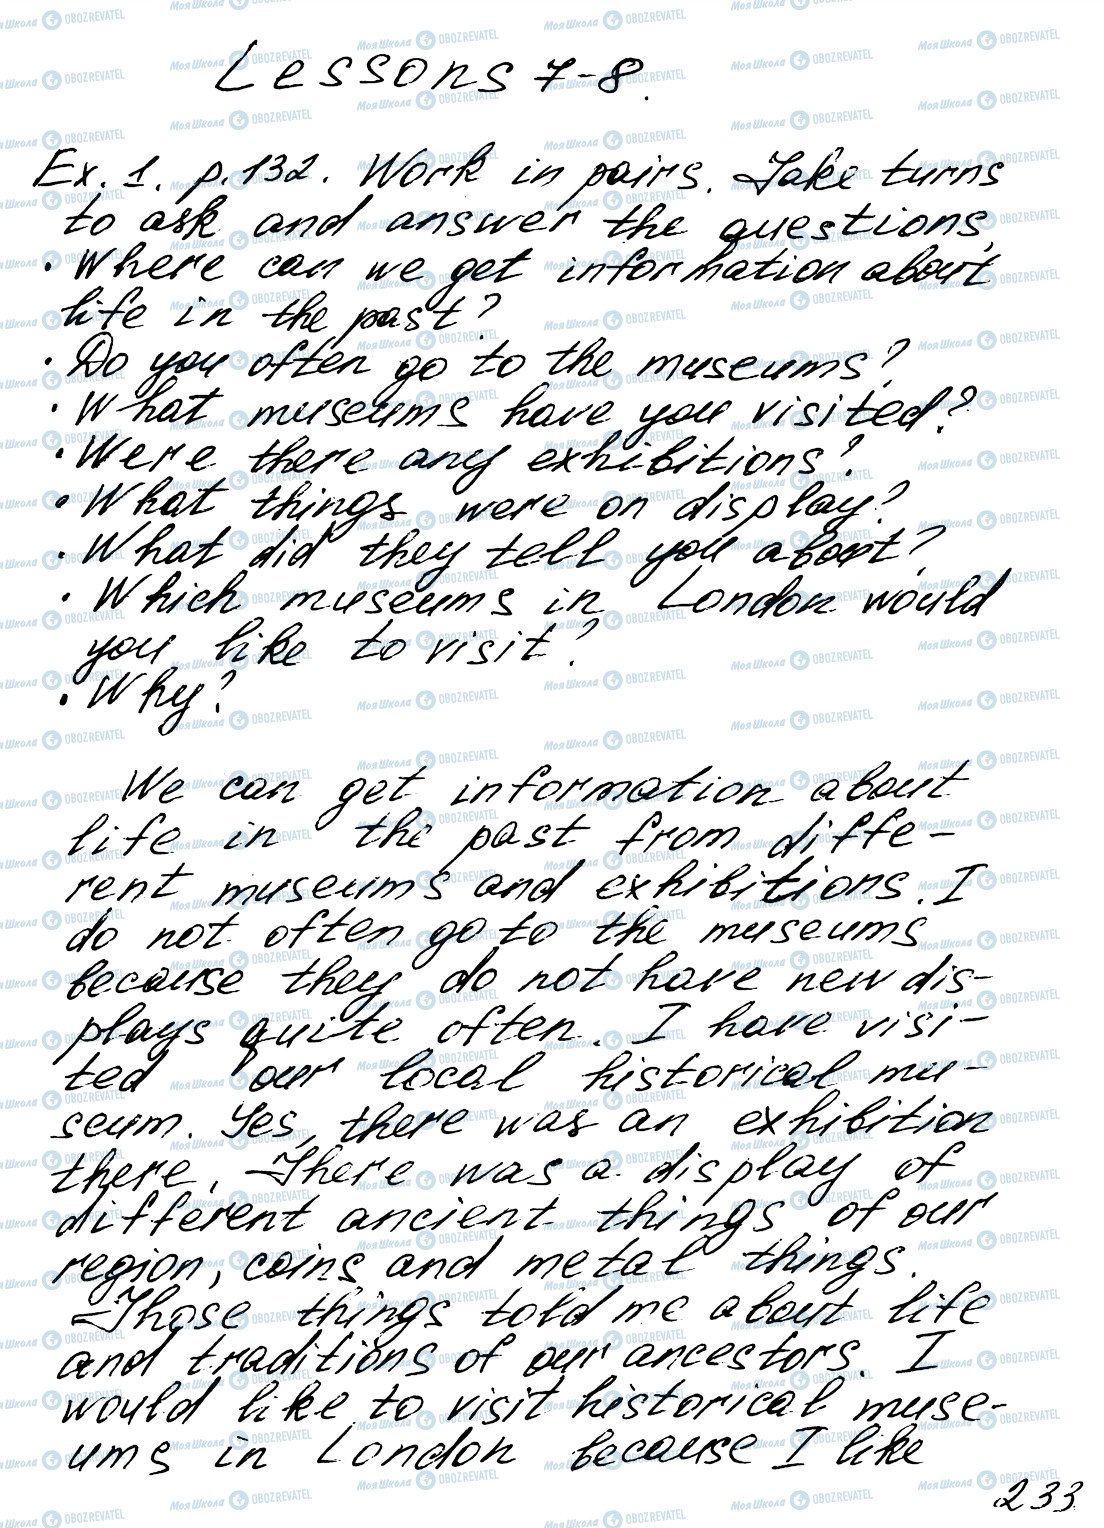 Lessons 7-8.
Ex. 1. p. 132. Work in pairs. Take turns
to ask and answer the questions.
• Where can we get information about
life in the past?
• Do you often go to the museums?
• What museums have you visited?
• Were there any exhibitions?
• What things were on display?
• What did they tell you about?
• Which museums in London would
you like to visit?
• Why?
We can get information about
life in the past from diffe-
rent museums and exhibitions. I
do not often go to the museums
because they do not have new dis-
plays quite often. I have visi-
ted our local historical mu-
seum. Yes, there was an exhibition
there. There was a display of
different ancient things of our
region, coins and metal things.
Those things told me about life
and traditions of our ancestors. I
would like to visit historical muse-
ums in London because I like
233
Моя Школа OBOZREVATEL